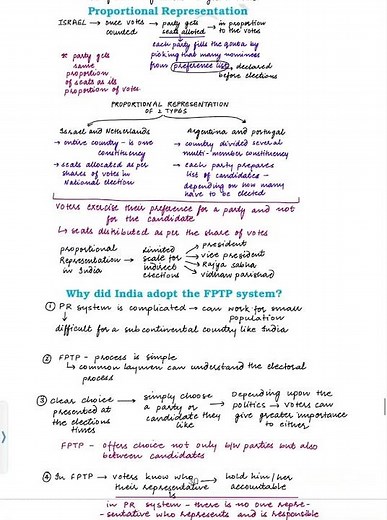 Proportional Representation
ISRAEL → once votes counted → party gets seats alloted → in proportion to the votes
each party fills the quota by
picking that many nominees
from preference list, declared before elections
* party gets
same
proportion
of seats as its
proportion of votes
PROPORTIONAL REPRESENTATION
OF 2 TYPES
Israel and Netherlands
→ entire country - is one
constituency
→ seats allocated as per
shares of votes in
National election
Argentina and portugal
→ country divided several
multi-member constituency
→ each party prepares
list of candidates -
depending on how many
have to be elected
Voters exercise their preference for a party and not
for the candidate
↳ seats distributed as per the share of votes
proportional
Representation →
in India
limited
scale for
indirect
elections
→ president
→ vice president
→ Rajya sabha
→ vidhan parishad
Why did India adopt the FPTP system?
① PR system is complicated → can work for small
population
↓
difficult for a sub continental country like India
② FPTP - process is simple
↳ common laymen can understand the electoral
process
③ clear choice →
presented at
the elections
times
simply choose
a party or
candidate they
like
→ Depending upon the
politics → voters can
give greater importance
to either
FPTP - offers choice not only b/w parties but also
between candidates
④ In FPTP → voters know who is
their representative
→ hold him/her
accountable
in PR system - there is no one repre-
-sentative who represents and is responsible